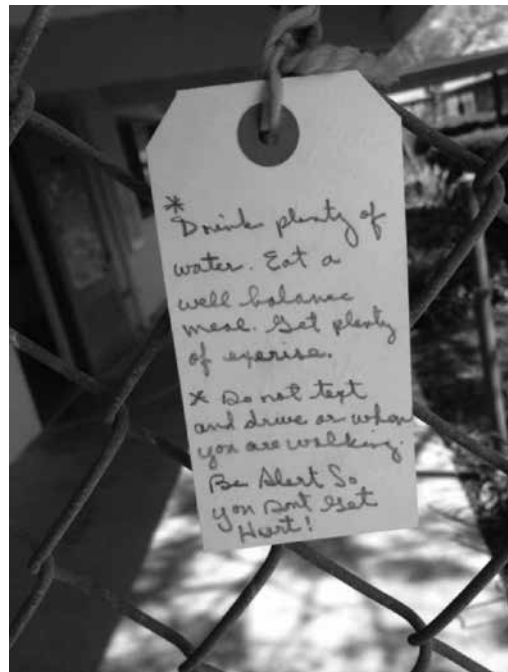 *
Drink plenty of
water. Eat a
well balance
meal. Get plenty
of exerise.
* Do not text
and drive or when
you are walking.
Be Alert So
you Dont Get
Hurt!